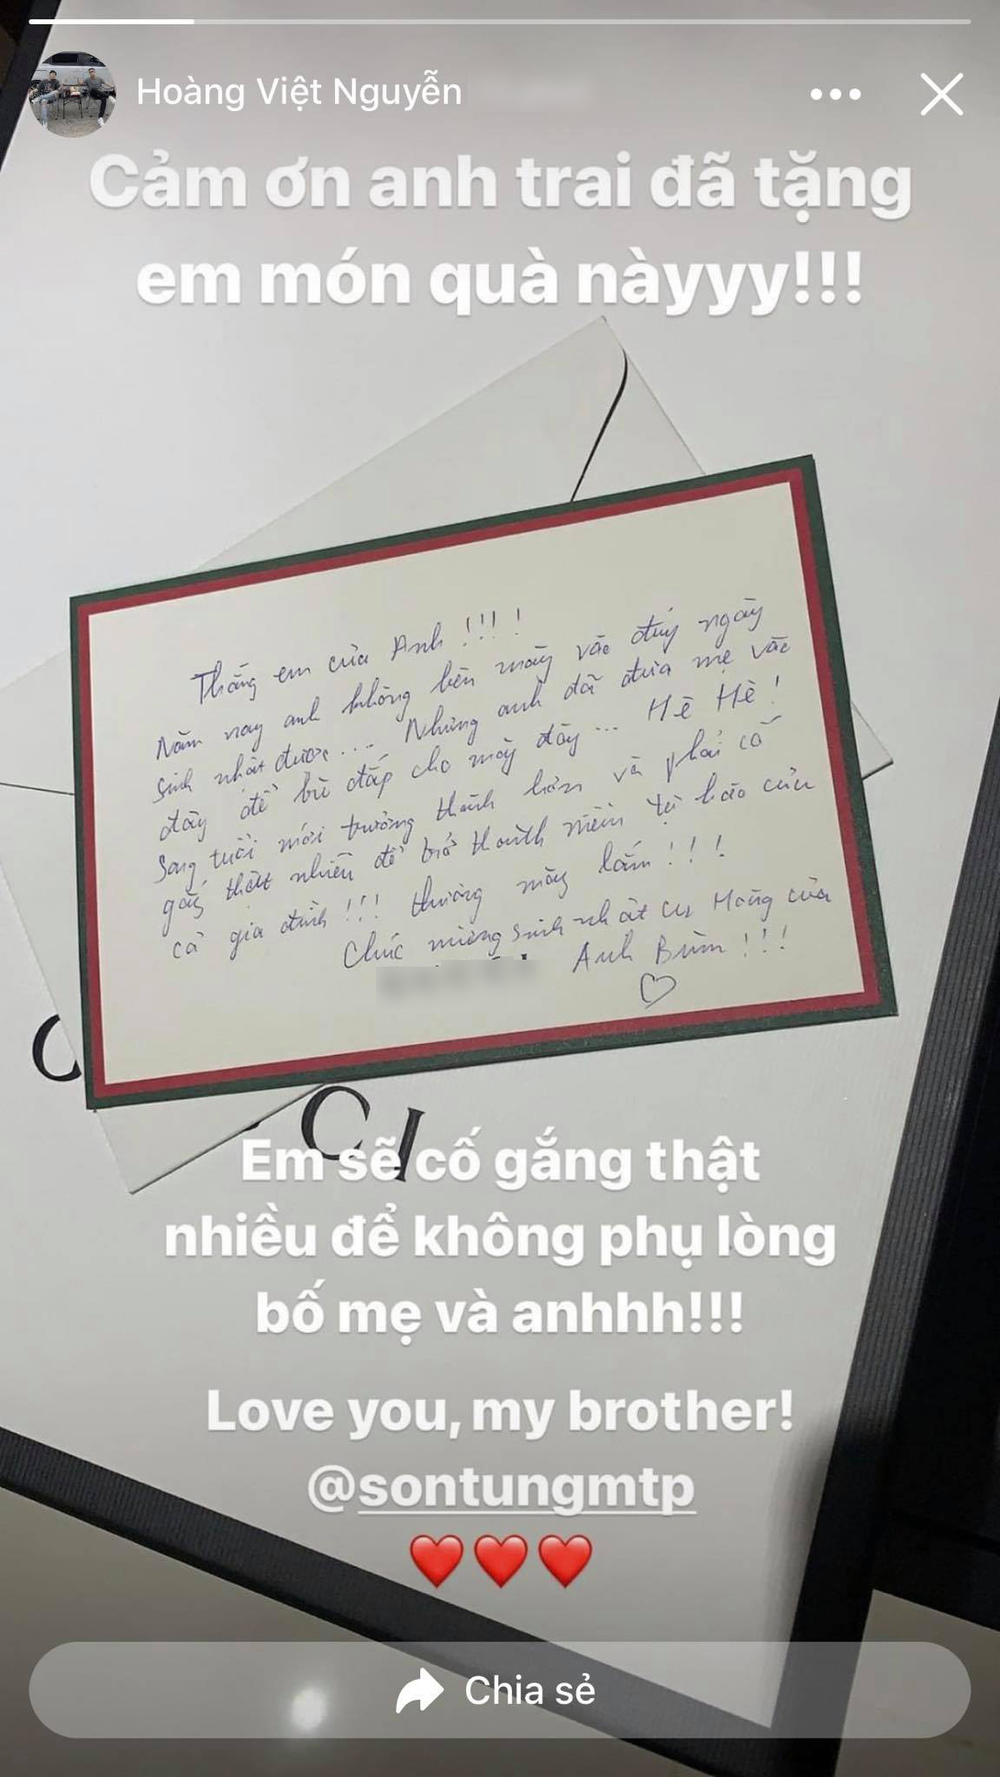 Hoàng Việt Nguyễn
Cảm ơn anh trai đã tặng
em món quà nàyyy!!!
Thằng em của Anh !!! !
Năm nay anh không bên mày vào đúng ngày
sinh nhật được... Nhưng anh đã đưa mẹ vào
đây để bù đắp cho mày đây... Hê Hê !
Sang tuổi mới trưởng thành hơn và phải cố
gắng thật nhiều để trở thành niềm tự hào của
cả gia đình !!! thương mày lắm !!!
Chúc mừng sinh nhật cu Hoàng của
Anh Bùm !!!
C CI
Em sẽ cố gắng thật
nhiều để không phụ lòng
bố mẹ và anhhh!!!
Love you, my brother!
@sontungmtp
Chia sẻ